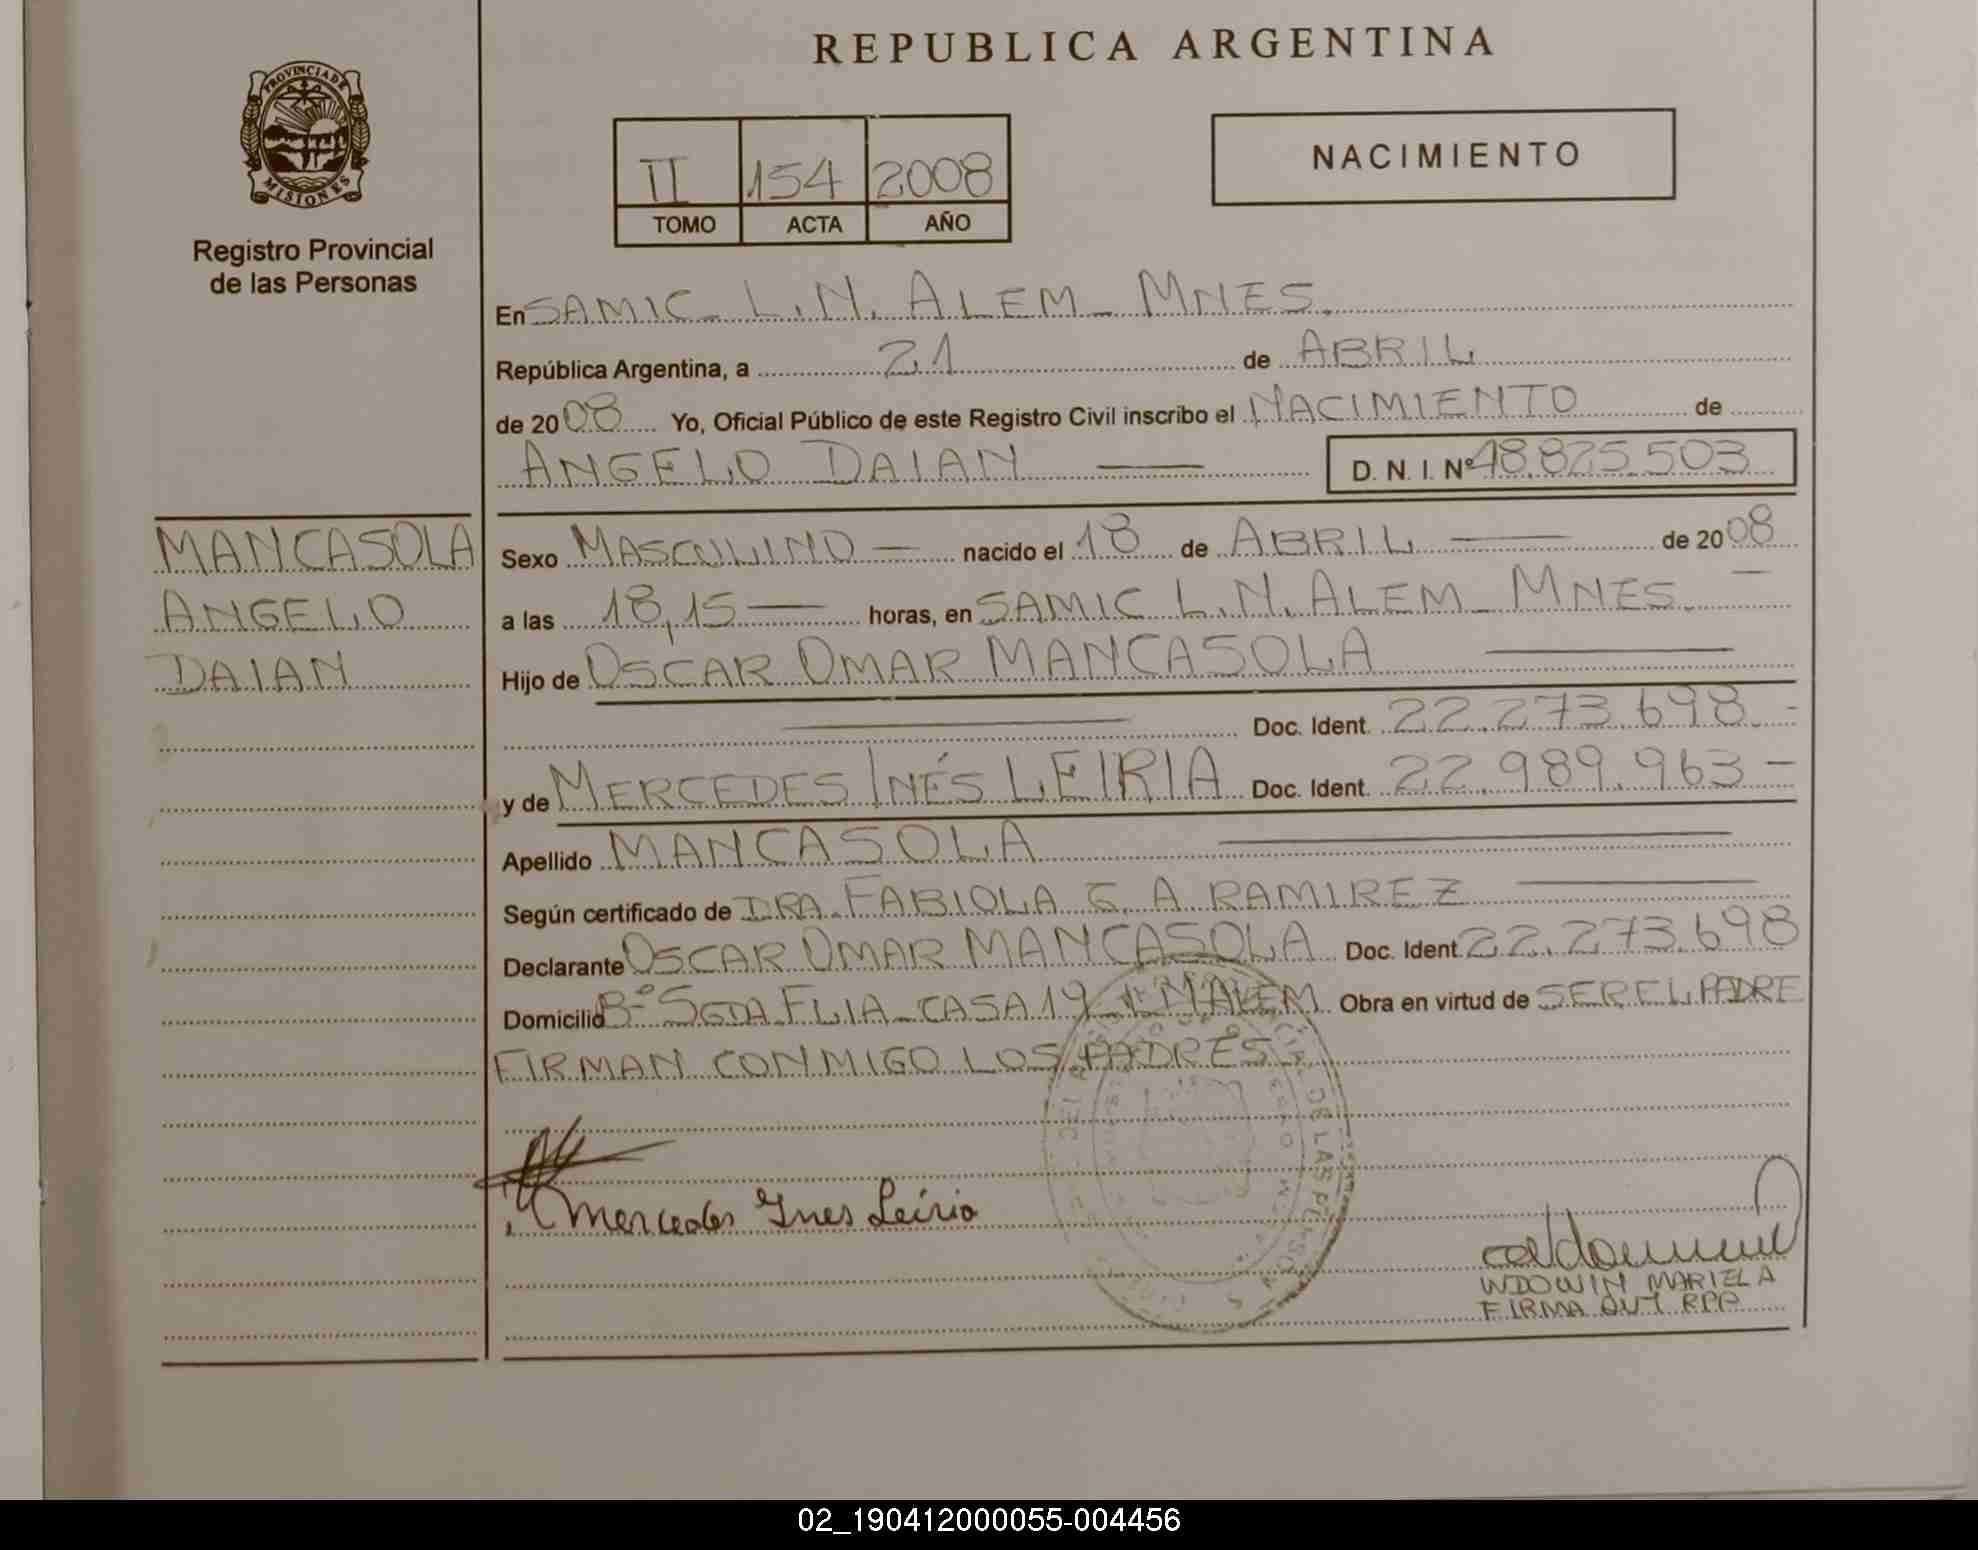 REPUBLICA ARGENTINA
PROVINCIA DE
MISIONES
Registro Provincial
de las Personas
II 154 2008
TOMO ACTA AÑO
NACIMIENTO
En SAMIC_ L.N. ALEM_ MNES.
República Argentina, a 21 de ABRIL
de 2008 Yo, Oficial Público de este Registro Civil inscribo el NACIMIENTO de
ANGELO DAIAN — D. N. I. Nº 48.825.503
MANCASOLA
ANGELO
DAIAN
Sexo MASCULINO — nacido el 18 de ABRIL — de 2008
a las 18,15 — horas, en SAMIC L.N. ALEM_ MNES. —
Hijo de OSCAR OMAR MANCASOLA —
— Doc. Ident. 22.273.698.-
y de MERCEDES INÉS LEIRIA Doc. Ident. 22.989.963 —
Apellido MANCASOLA —
Según certificado de DRA. FABIOLA G. A. RAMIREZ —
Declarante OSCAR OMAR MANCASOLA Doc. Ident. 22.273.698
Domicilio Bº SGDA FLIA_ CASA 19 Obra en virtud de SER EL PADRE
FIRMAN CONMIGO LOS PADRES
Mercedes Ines Leiria
DE LAS PERSONAS
WDOWIN MARIELA
FIRMA AUT RPP
02_190412000055-004456